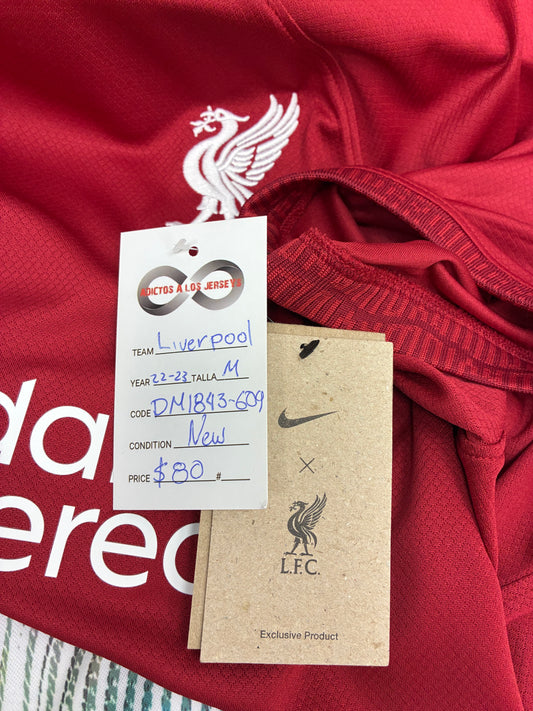 ADICTOS A LOS JERSEYS
TEAM Liverpool
YEAR 22-23 TALLA M
CODE DM1843-609
CONDITION New
PRICE $80 #
×
L.F.C.
Exclusive Product
dar
ered